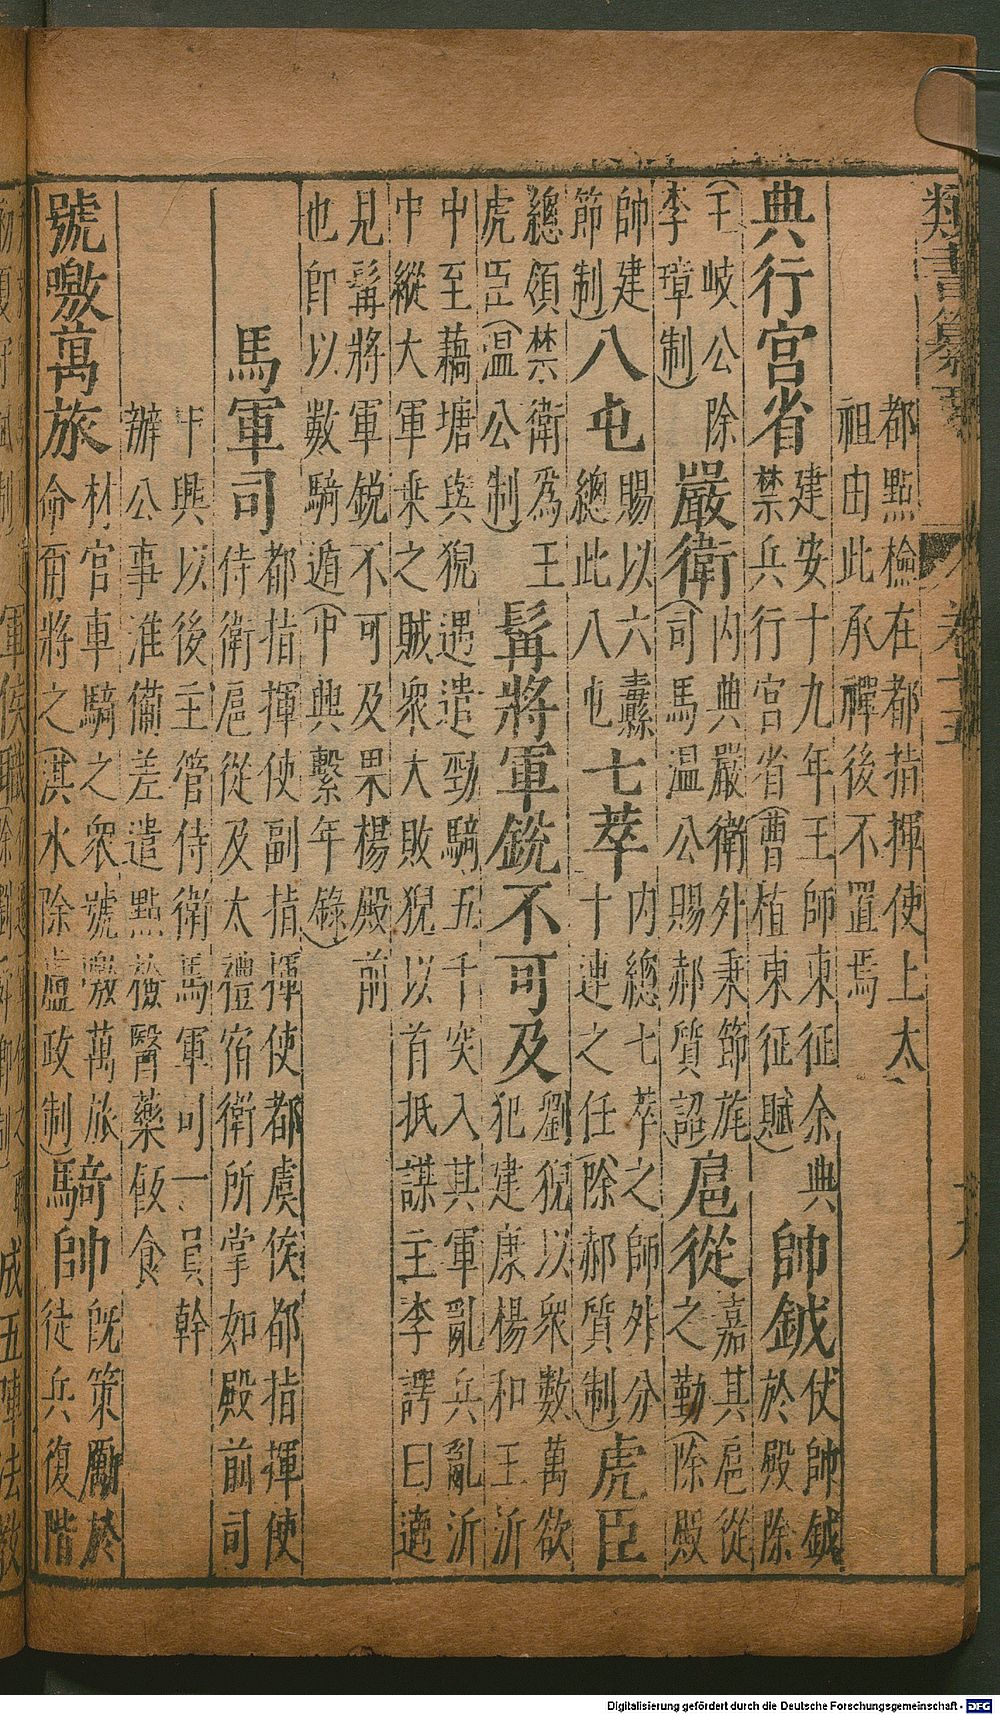 類書纂要 卷十五 十九
都點檢在都指揮使上太
祖由此承禪後不置焉
典行宮省
建安十九年王師東征余典
禁兵行宮省(曹植東征賦)
帥鉞
仗帥鉞
於殿除
(王岐公除
李璋制)
嚴衛
內典嚴衛外秉節旄
(司馬温公賜郝質詔)
扈從
嘉其扈從
之勤(除殿
帥建
節制)
八屯
賜以六纛縣
總此八屯
七萃
內總七萃之師外分
十連之任(除郝質制)
虎臣
總領禁衛爲王
虎臣(温公制)
髯將軍銳不可及
劉猊以衆數萬欲
犯建康楊和王沂
中至藕塘與猊遇遣勁騎五千突入其軍亂兵亂沂
中縱大軍乗之賊衆大敗猊以首抵謀主李諤曰適
見髯將軍銳不可及果楊殿前
也即以數騎遁(中興繫年錄)
馬軍司
都指揮使副指揮使都虞侯都指揮使
侍衛扈從及太禮宿衛所掌如殿前司
中興以後主管侍衛馬軍司一員幹
辦公事准備差遣點檢醫藥飯食
號噭萬旅
材官車騎之衆號噭萬旅
命爾將之(淇水除盧政制)
騎帥
既策勵於
徒兵復階
Digitalisierung gefördert durch die Deutsche Forschungsgemeinschaft - DFG